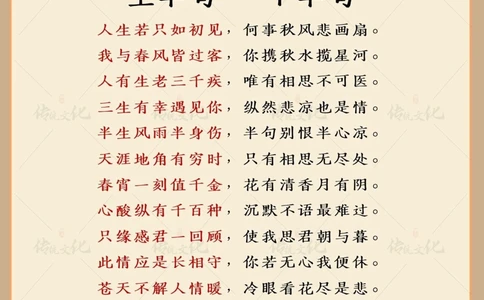 人生若只如初见，何事秋风悲画扇。
我与春风皆过客，你携秋水揽星河。
人有生老三千疾，唯有相思不可医。
三生有幸遇见你，纵然悲凉也是情。
半生风雨半身伤，半句别恨半心凉。
天涯地角有穷时，只有相思无尽处。
春宵一刻值千金，花有清香月有阴。
心酸纵有千百种，沉默不语最难过。
只缘感君一回顾，使我思君朝与暮。
此情应是长相守，你若无心我便休。
苍天不解人情暖，冷眼看花尽是悲。